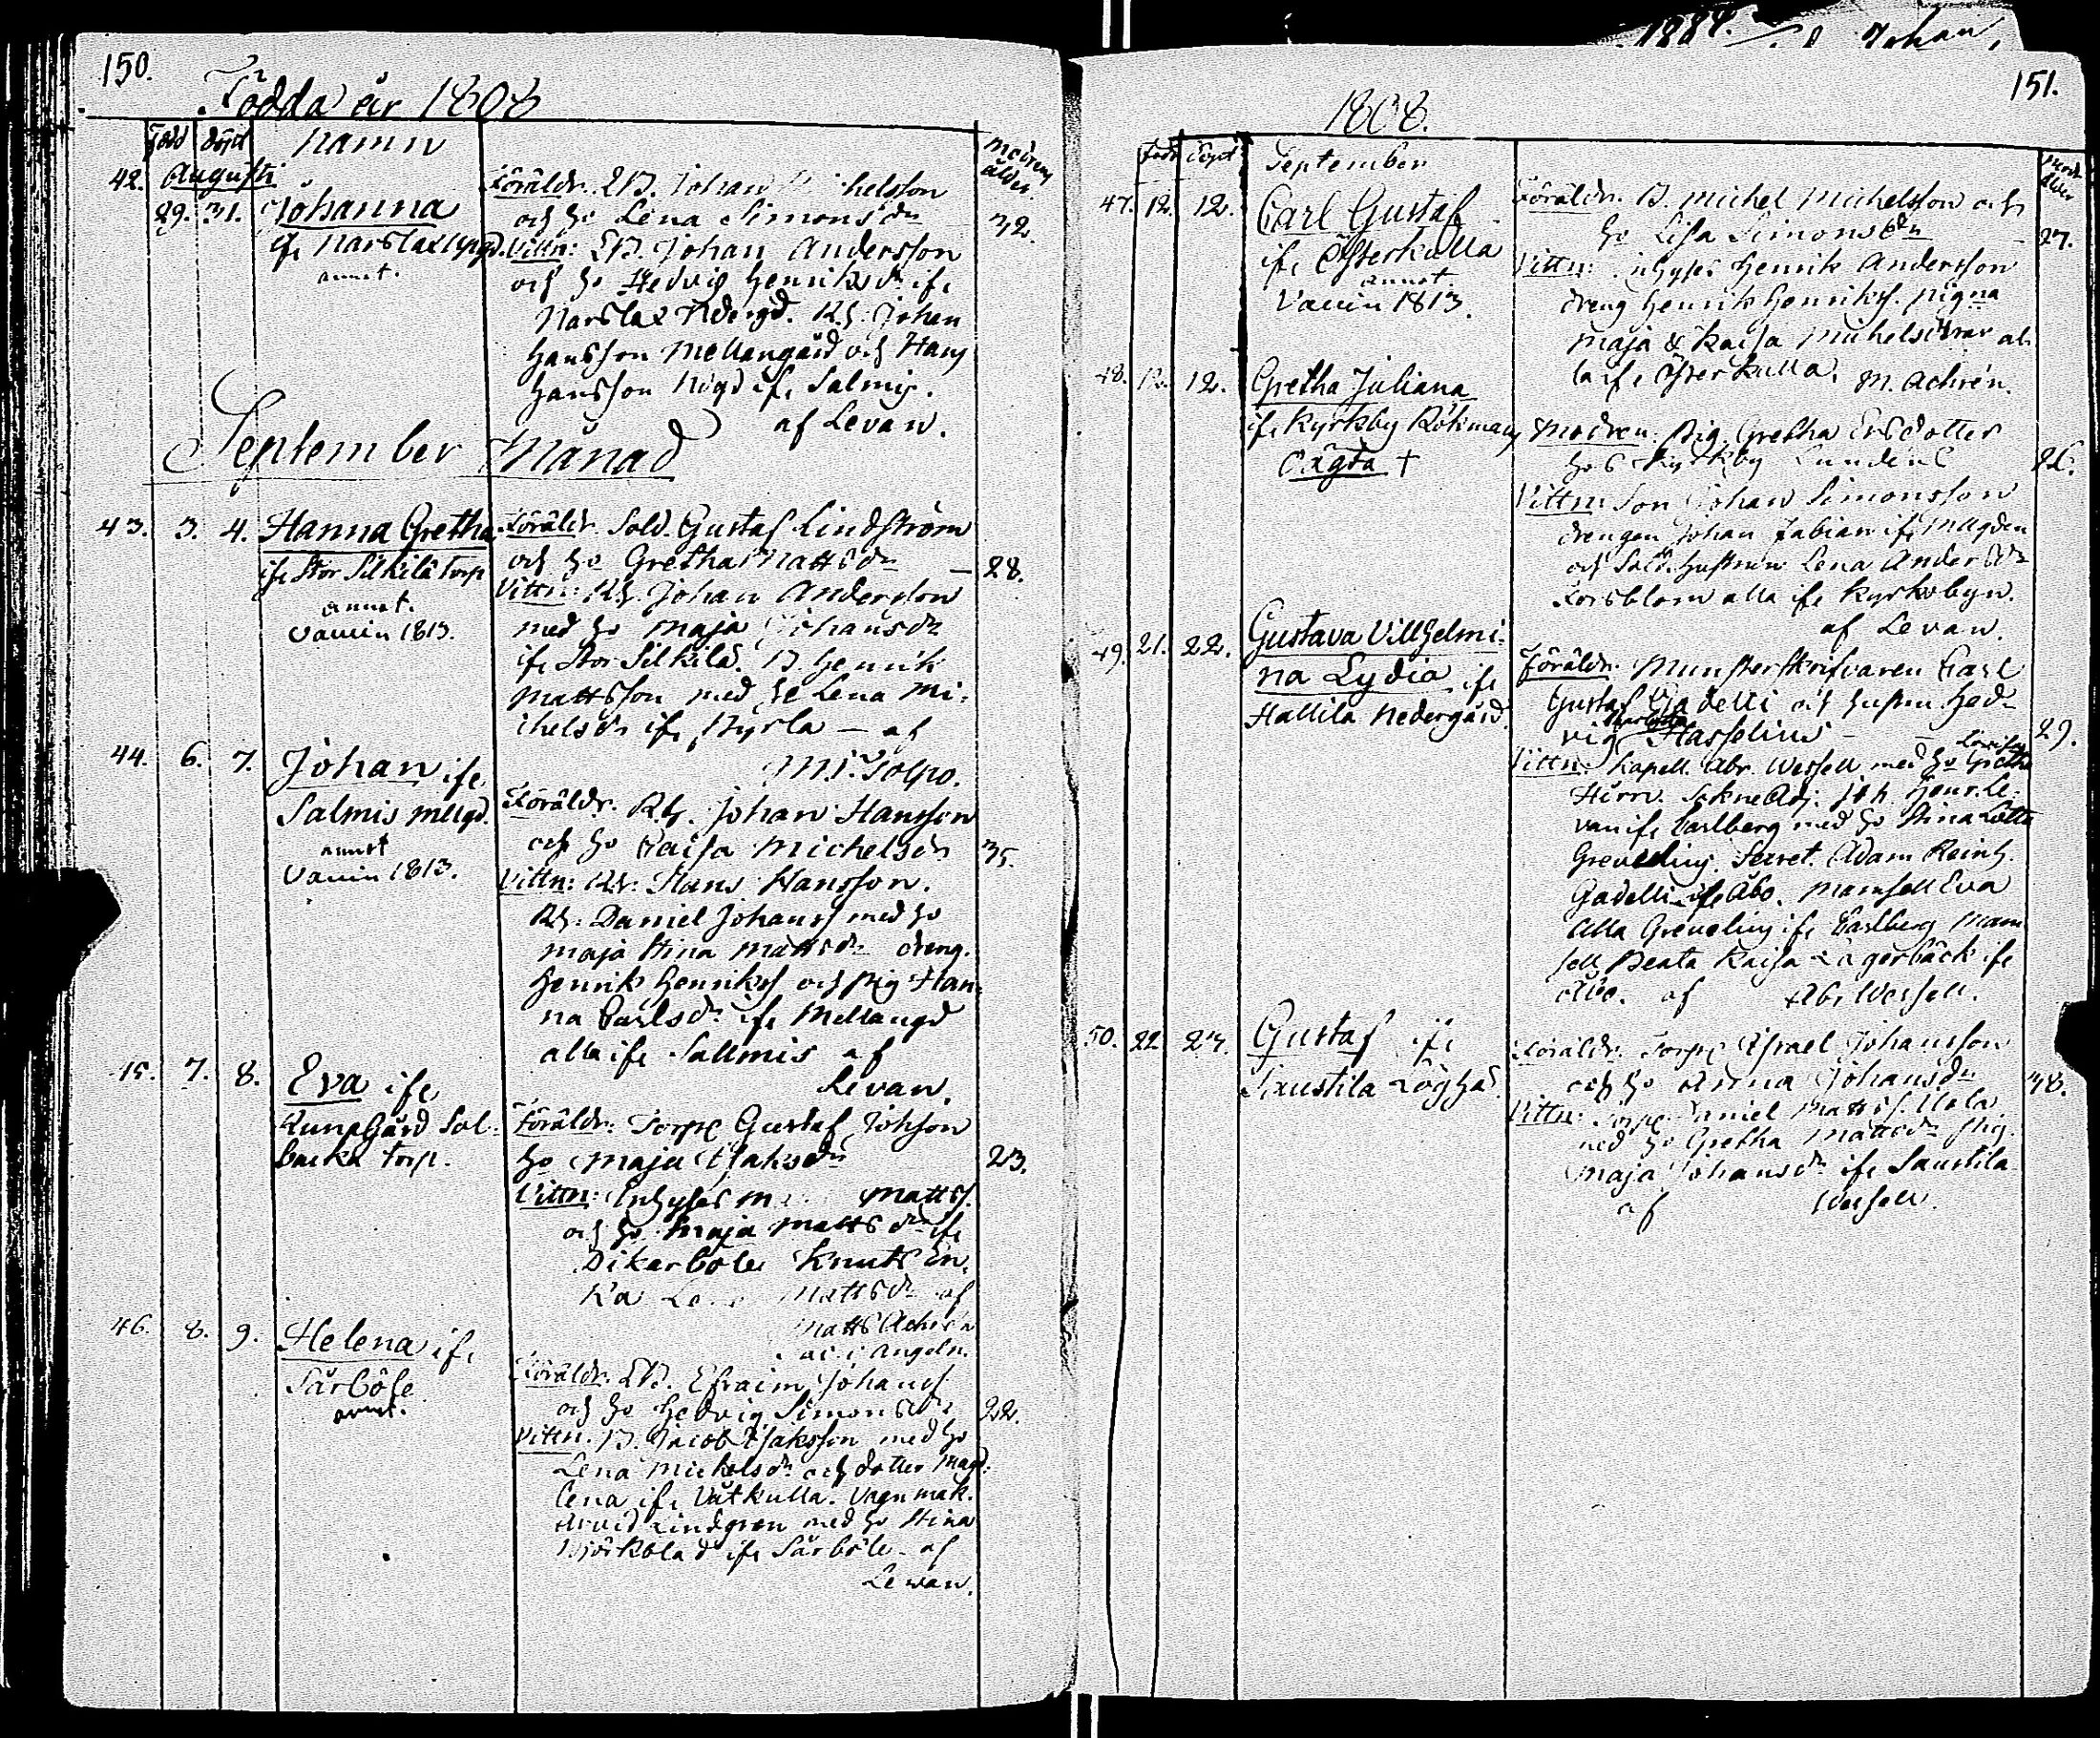 150.
Födda år 1808
Född döpt Namn Modrens ålder
Augusti
42. 29. 31. Johanna
ifr. Narstax
annot.
Föräldr. Johan
och ho Lena Simonsdr 32.
Vittn: Johan Andersson
och ho Hedvig Henriksdr ifr
Narstax Nedergd. Rh. Johan
Hansson Mellangård och Hans
Hansson ifr Salmis.
af Levan.
September Månad
43. 3. 4. Hanna Gretha
ifr Stor Silkilä torp
annot.
Vaccin 1813.
Föräldr. Sold. Gustaf Lindström
och ho Gretha Mattsdr — 28.
Vittn: Rh. Johan Andersson
med ho Maja Johansdr
ifr Stor Silkilä. B. Henrik
Mattsson med ho Lena Mi-
chelsdr ifr Kyrla — af
Mr. Polpo.
44. 6. 7. Johan ifr
Salmis Mellgd.
annot
Vaccin 1813.
Föräldr. Rh. Johan Hansson
och ho Caisa Michelsdr 35.
Vittn: Rh: Hans Hansson.
Rh: Daniel Johanss med ho
Maja Stina Mattsdr dreng.
Henrik Henrikss och pig Han-
na Carlsdr ifr Mellangd
alla ifr Sallmis af
Levan.
45. 7. 8. Eva ifr
Kungsgård Sol-
backa torp.
Föräldr: Torp Gustaf Johsson
ho Maja Isaksdr 23.
Vittn: Inhyses M Mattss.
och ho Maja Mattsdr ifr
Dikarböle Knuts En-
ka Mattsdr af
Matts Achrén
46. 8. 9. Helena ifr
Särböle
annot.
Föräldr: Efraim Johanss
och ho Hedvig Simonsdr 22.
Vittn. B. Jacob Isaksson med ho
Lena Michelsdr och dotter Magd-
lena ifr Våtkulla. Vagnmak.
Arvid Lindgren med ho Stina
Björkblad ifr Särböle af
Levan.
151.
1808.
Född Döpt September
47. 12. 12. Carl Gustaf
ifr Österkulla
annot.
Vaccin 1813.
Föräldr. B. Michel Michelsson och
ho Lisa Simonsdr 27.
Vittn: inhyses Henrik Andersson
dreng Henrik Henrikss. pigna
Maja & Kaisa Michelsdttrar al-
la ifr Österkulla. M. Achrén.
48. 12. 12. Gretha Juliana
ifr Kyrkby Rökmans
Oägta †
Modren: Pig. Gretha Ersdotter
hos Kyrkby Lundens 26.
Vittn: Son Johan Simonsson
drengen Johan Fabian ifr Magden
och Sold. hustrun Lena Andersdr
Forsblom alla ifr Kyrkobyn.
af Levan.
49. 21. 22. Gustava Villhelmi-
na Lydia ifr
Hallila Nedergård
Föräldr. Munsterskrifvaren Carl
Gustaf Gadelli och hustru Hed-
vig Charlotta Hasselius — — 29.
Vittn: Kapell. Abr. Wessell med ho Gretha Lovisa
Hirn. SokneAdj. Joh. Henr. Le-
van ifr Carlberg med ho Stina Lotta
Greveling. Secret. Adam Reinh.
Gadelli ifr Åbo. Mamsell Eva
Ulla Greveling ifr Carlberg Mam
sell Beata Kaisa Lagerbäck ifr
Åbo. af Abr Wessell.
50. 22. 24. Gustaf ifr
Saustila
Föräldr. Torp Israel Johansson
och ho Anna Johansdr 38.
Vittn: Torp Daniel Mattss.
med ho Gretha Mattsdr Pig.
Maja Johansdr ifr Saustila
af Wessell.